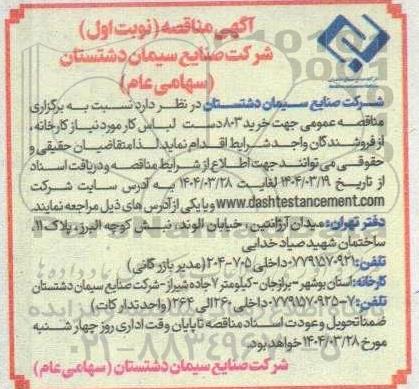 آگهی مناقصه (نوبت اول)
شرکت صنایع سیمان دشتستان
(سهامی عام)
شرکت صنایع سیمان دشتستان در نظر دارد نسبت به برگزاری
مناقصه عمومی جهت خرید ۸۰۳ دست لباس کار مورد نیاز کارخانه،
از فروشندگان واجد شرایط اقدام نماید. لذا متقاضیان حقیقی و
حقوقی می توانند جهت اطلاع از شرایط مناقصه و دریافت اسناد
از تاریخ ۱۴۰۴/۰۳/۱۹ لغایت ۱۴۰۴/۰۳/۲۸ به آدرس سایت شرکت
www.dashtestancement.com و یا یکی از آدرس های ذیل مراجعه نمایند.
دفتر تهران: میدان آرژانتین، خیابان الوند، نبش کوچه البرز، پلاک ۱۱،
ساختمان شهید صیاد خدایی
تلفن: ۰۷۷۹۱۵۷۰۹۲۱ داخلی ۷۰۵-۲۰۴ (مدیر بازرگانی)
کارخانه: استان بوشهر - برازجان - کیلومتر ۷ جاده شیراز - شرکت صنایع سیمان دشتستان
تلفن: ۷-۰۷۷۹۱۵۷۰۹۲۵ داخلی ۲۶۰ الی ۲۶۴ (واحد تدارکات)
ضمنا تحویل و عودت اسناد مناقصه تا پایان وقت اداری روز چهار شنبه
مورخ ۱۴۰۴/۰۳/۲۸ خواهد بود.
شرکت صنایع سیمان دشتستان (سهامی عام)